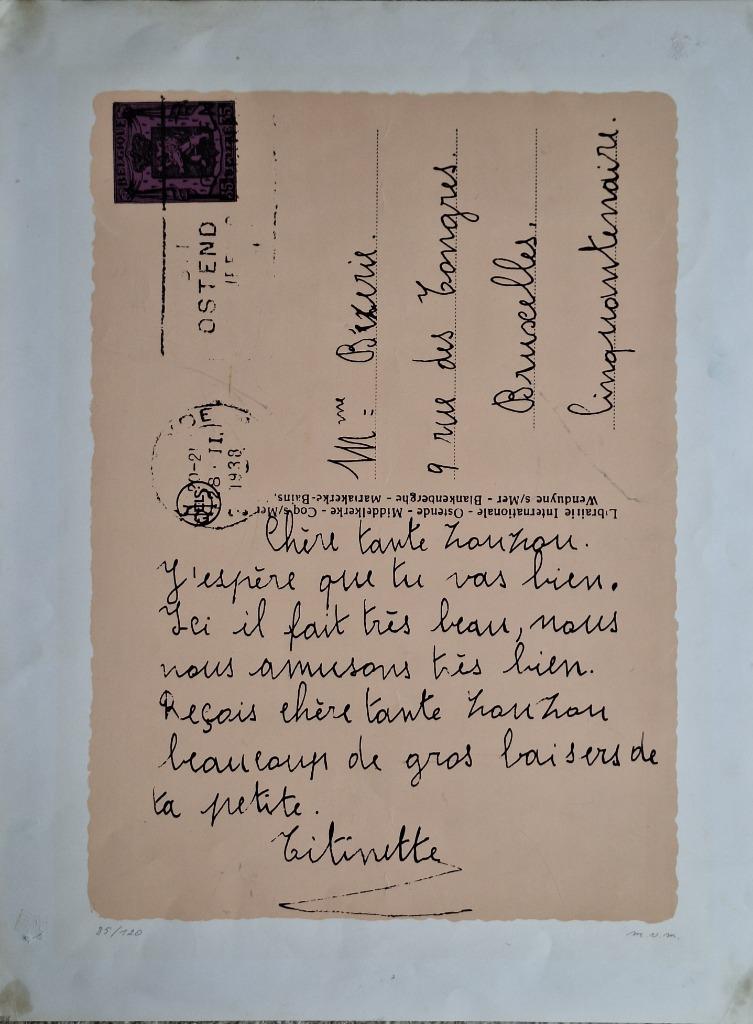 BELGIQUE
35
OSTEND
20-21
8. II.
1938
Mme Bézerie.
9 rue des Tongres.
Bruxelles.
Cinquantenaire.
Librairie Internationale - Ostende - Middelkerke - Coq s/Mer -
Wenduyne s/Mer - Blankenberghe - Mariakerke-Bains.
Chère tante Zouzou.
J'espère que tu vas bien.
Ici il fait très beau, nous
nous amusons très bien.
Reçois chère tante Zouzou
beaucoup de gros baisers de
ta petite.
Titinette
85/120
m.v.m.